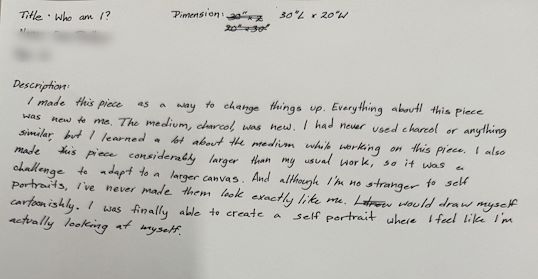 Title: Who am I? Dimension: 30"L x 20"W
Description:
I made this piece as a way to change things up. Everything aboutt this piece
was new to me. The medium, charcol, was new. I had never used charcol or anything
similar, but I learned a lot about the medium while working on this piece. I also
made this piece considerably larger than my usual work, so it was a
challenge to adapt to a larger canvas. And although I'm no stranger to self
portraits, I've never made them look exactly like me. I would draw myself
cartoonishly. I was finally able to create a self portrait where I feel like I'm
actually looking at myself.